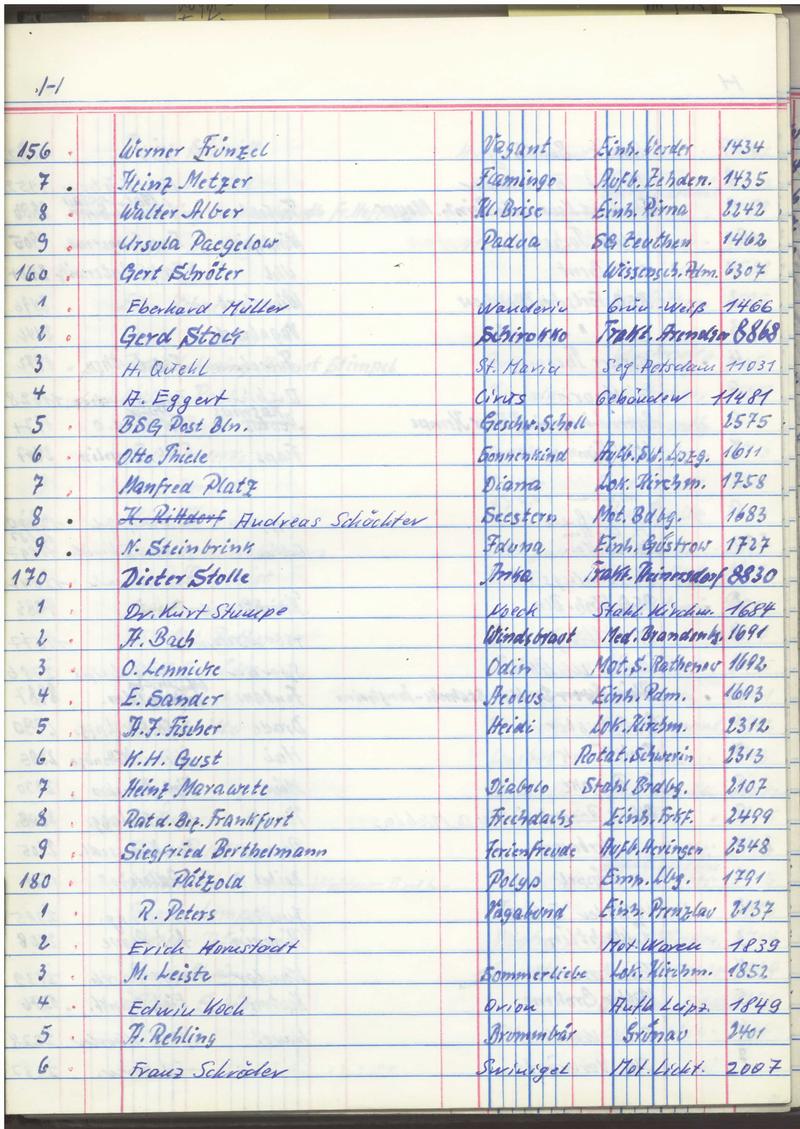 H
156 . Werner Fränzel Vagant Einh. Werder 1434
7 . Heinz Metzer Flamingo Aufb. Zehden. 1435
8 . Walter Alber Kl. Brise Einh. Pirna 2242
9 . Ursula Paegelow Padua SG Zeuthen 1462
160 . Gert Schröter Wissensch. Pdm. 6307
1 Eberhard Müller Wanderin Grün-Weiß 1466
2 . Gerd Stock Schirokko Trakt. 8868
3 H. Quehl St. Maria Seg. Potsdam 11031
4 . A. Eggert Cirus 11481
5 . BSG Post Bln. Geschw. Scholl 2575
6 . Otto Thiele Sonnenkind Aufb. Sw. Lpzg. 1611
7 . Manfred Platz Diana Lok. Kirchm. 1758
8 . K. Rittdorf Andreas Schächter Seestern Mot. Bdbg. 1683
9 . N. Steinbrink Iduna Einh. Güstrow 1727
170 . Dieter Stolle Anka Trakt. Heinersdorf 8830
1 . Dr. Kurt Stumpe Noeck Stahl Kirchm. 1684
2 . H. Bach Windsbraut Med. Brandenbg. 1691
3 . O. Lennicke Odin Mot. S. Rathenow 1692
4 . E. Sander Aeolus Einh. Pdm. 1693
5 . A.F. Fischer Heidi Lok. Kirchm. 2312
6 . K.H. Gust Rotat. Schwerin 2313
7 . Heinz Marawete Diabolo Stahl Brdbg. 2107
8 . Rat d. Bez. Frankfurt Frechdachs Einh. Frkf. 2499
9 . Siegfried Berthelmann Ferienfreude Aufb. 2348
180 . Pätzold Polyp Emp. Lbg. 1791
1 . R. Peters Vagabund Einh. Prenzlau 2137
2 . Erich Hornstädt Mot. Waren 1839
3 . M. Leiste Sommerliebe Lok. Kirchm. 1852
4 . Edwin Koch Orion Aufb. Leipz. 1849
5 . A. Rehling Brommbär Grünau 2401
6 . Franz Schröder Swinigel Mot. Licht. 2007